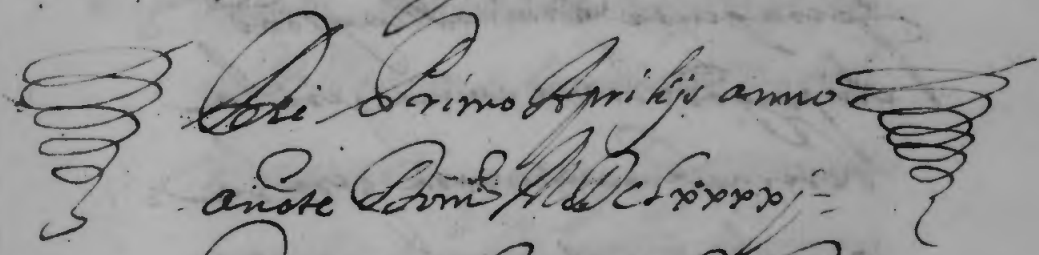 Dei Primo Aprilijs anno
anote Domi MDCLxxxxj